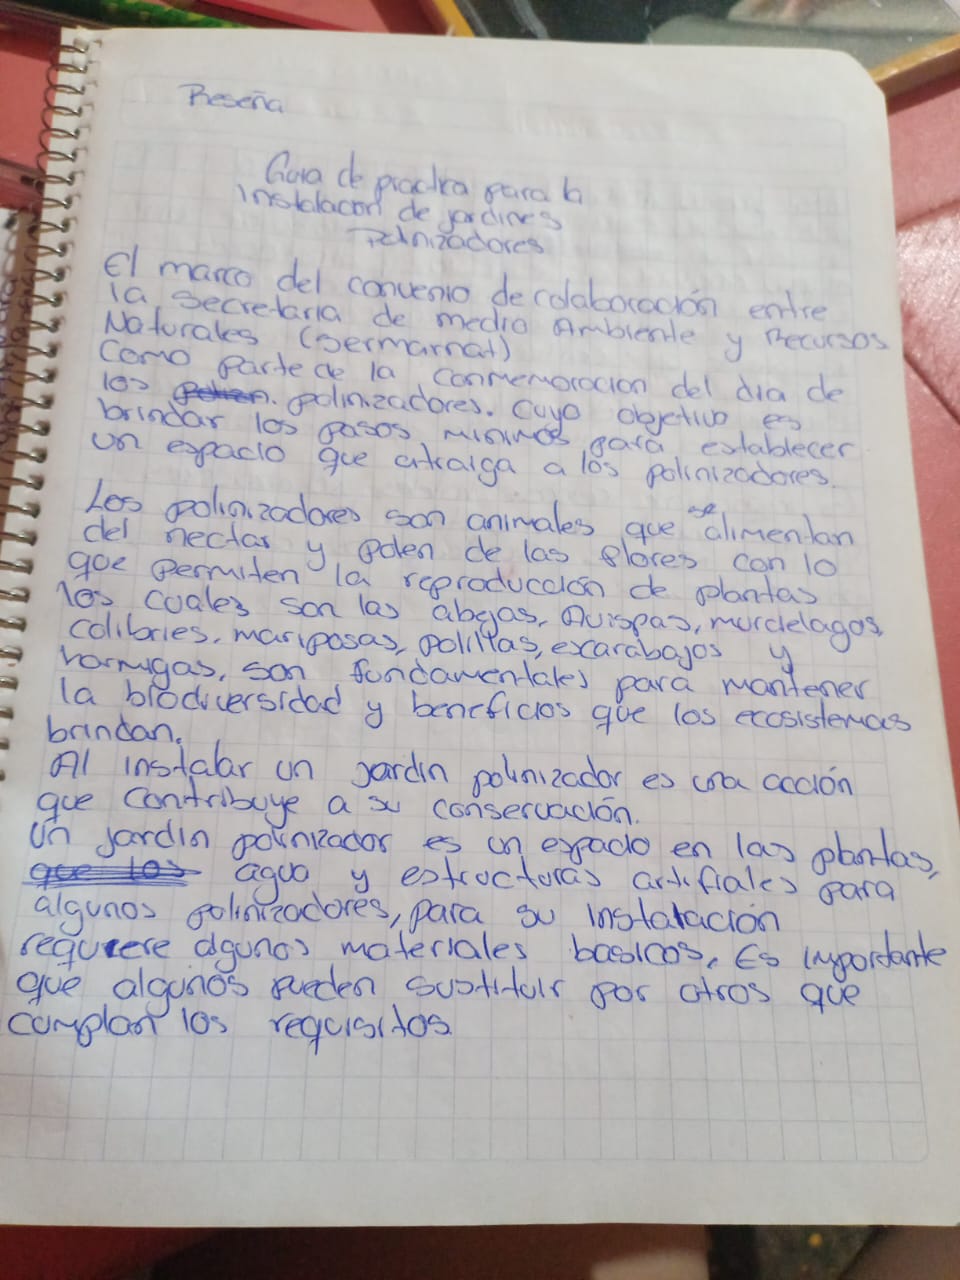 Reseña
Guia de practica para la
instalacon de jardines
Polnizadores
El marco del convenio de colaboracación entre
la secretaria de medio Ambiente y Recursos
Naturales (Sermarnat)
Como parte de la conmemoracion del dia de
los polinizadores. cuyo objetivo es
brindar los pasos minimos para establecer
un espacio que atraiga a los polinizadores.
Los polinizadores son animales que se alimentan
del nectar y polen de las flores con lo
que permiten la reproducción de plantas
los cuales son las abejas, Avispas, murcielagos,
colibries, mariposas, polillas, escarabajos y
hormigas, son fundamentales para mantener
la biodiversidad y beneficios que los ecosistemas
brindan.
Al instalar un jardin polinizador es una acción
que contribuye a su conservación.
Un jardin polinizador es un espacio en las plantas,
agua y estructuras artifiales para
algunos polinizadores, para su instalación
requiere algunos materiales basicos, Es importante
que algunos pueden sustituir por otros que
cumplan los requisitos.